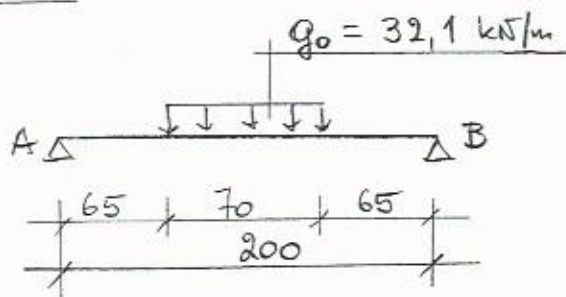 g₀ = 32,1 kN/m
A B
65 70 65
200